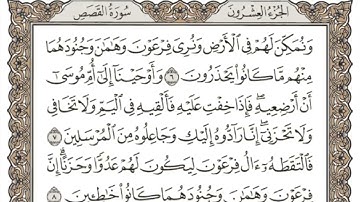 الجزء العشرون سورة القصص
وَنُمَكِّنَ لَهُمْ فِي ٱلْأَرْضِ وَنُرِيَ فِرْعَوْنَ وَهَٰمَٰنَ وَجُنُودَهُمَا
مِنْهُم مَّا كَانُوا۟ يَحْذَرُونَ ٦ وَأَوْحَيْنَآ إِلَىٰٓ أُمِّ مُوسَىٰٓ
أَنْ أَرْضِعِيهِ ۖ فَإِذَا خِفْتِ عَلَيْهِ فَأَلْقِيهِ فِي ٱلْيَمِّ وَلَا تَخَافِي
وَلَا تَحْزَنِيٓ ۖ إِنَّا رَآدُّوهُ إِلَيْكِ وَجَاعِلُوهُ مِنَ ٱلْمُرْسَلِينَ
٧ فَٱلْتَقَطَهُۥٓ ءَالُ فِرْعَوْنَ لِيَكُونَ لَهُمْ عَدُوًّا وَحَزَنًا ۗ إِنَّ
فِرْعَوْنَ وَهَٰمَٰنَ وَجُنُودَهُمَا كَانُوا۟ خَٰطِـِٔينَ ٨